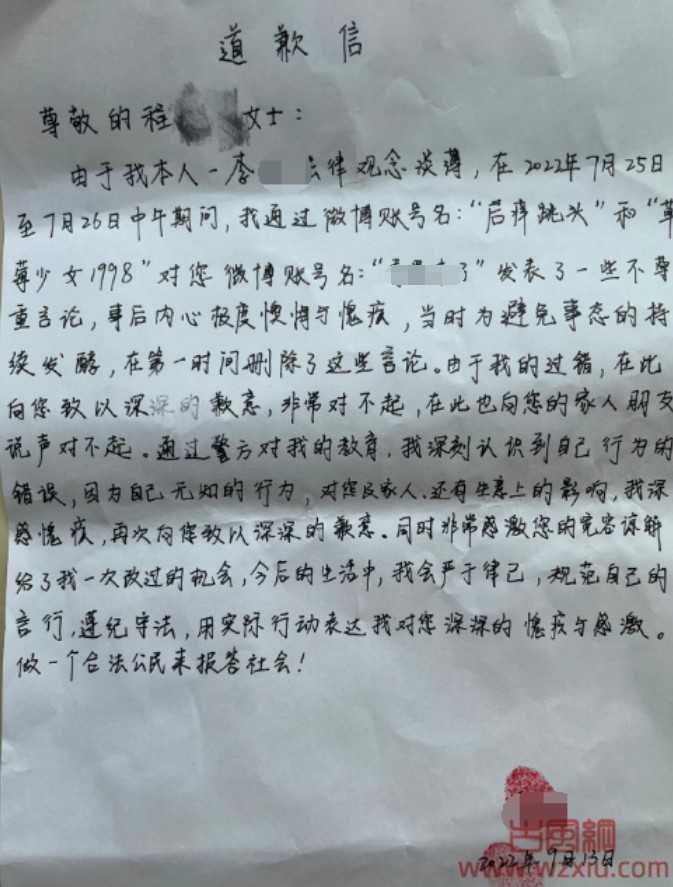 道歉信
尊敬的程 女士：
由于我本人一李 律观念淡薄，在2022年7月25日
至7月26日中午期间，我通过微博账号名："后痒跳头"和"草
莓少女1998"对您微博账号名:" 了"发表了一些不尊
重言论，事后内心极度懊悔与愧疚，当时为避免事态的持
续发酵，在第一时间删除了这些言论。由于我的过错，在此
向您致以深深的歉意，非常对不起，在此也向您的家人朋友
说声对不起。通过警方对我的教育，我深刻认识到自己行为的
错误，因为自己无知的行为，对您及家人、还有生意上的影响，我深
感愧疚，再次向您致以深深的歉意。同时非常感激您的宽容谅解
给了我一次改过的机会，今后的生活中，我会严于律己，规范自己的
言行，遵纪守法，用实际行动表达我对您深深的愧疚与感激。
做一个合法公民来报答社会！
2022年9月13日
古風網
www.wzxiu.com